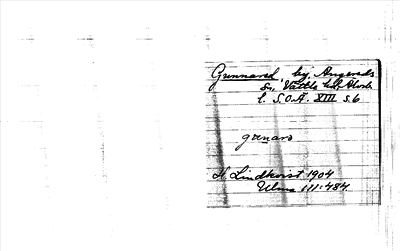 Gunnared, by, Angereds
sn, Vättle hd, Älvsb.
l. S.O.Ä. XIII s. 6
gunaro
H. Lindkvist 1904
Ulma 111:484